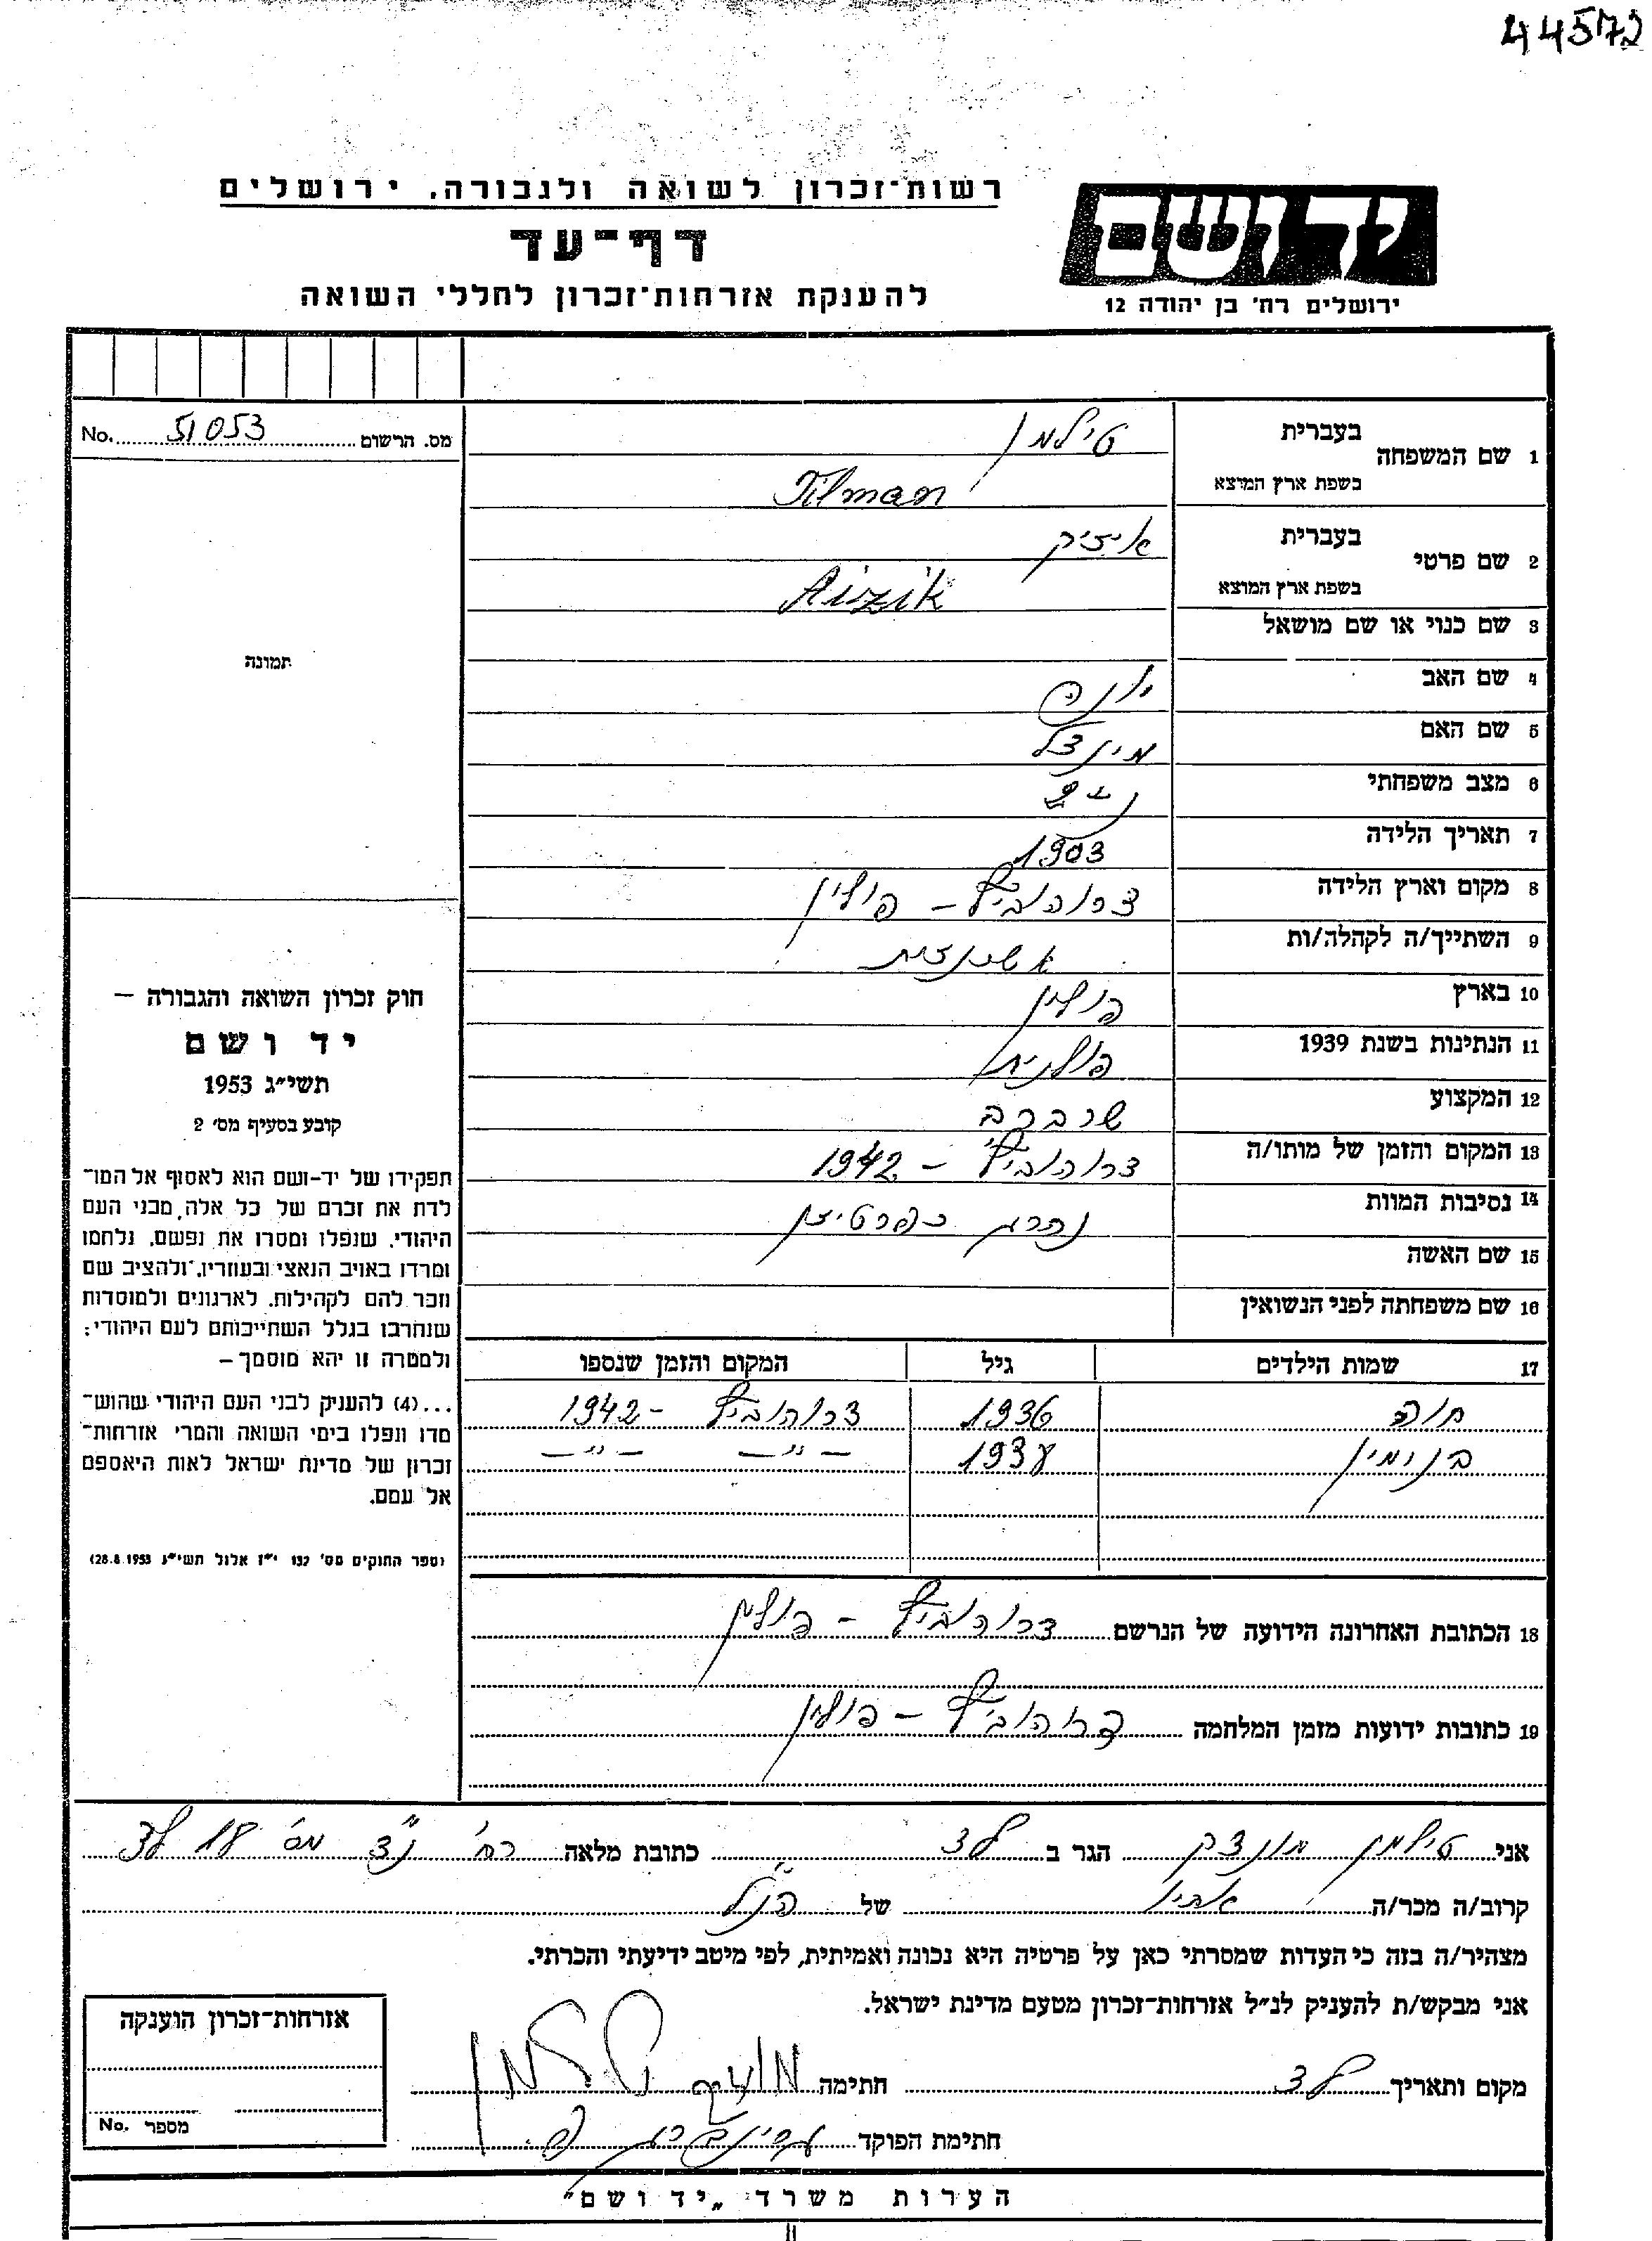 44572
רשות־זכרון לשואה ולגבורה. ירושלים
דף־עד
להענקת אזרחות־זכרון לחללי השואה
יד ושם
ירושלים רח' בן יהודה 12
מס. הרשום 51053 No.
תמונה
1 שם המשפחה
בעברית טילמן
בשפת ארץ המוצא Tilman
2 שם פרטי
בעברית איזיק
בשפת ארץ המוצא Aizik
3 שם כנוי או שם מושאל
4 שם האב יונה
5 שם האם
6 מצב משפחתי
7 תאריך הלידה 1903
8 מקום וארץ הלידה דרוהוביץ – פולין
9 השתייך/ה לקהלה/ות אשכנזית
10 בארץ פולין
11 הנתינות בשנת 1939 פולנית
12 המקצוע שרברב
13 המקום והזמן של מותו/ה דרוהוביץ – 1942
14 נסיבות המוות נהרג כפרטיזן
15 שם האשה
16 שם משפחתה לפני הנשואין
17 שמות הילדים גיל המקום והזמן שנספו
חוה 1936 דרוהוביץ – 1942
בנימין 1938 –"– –"–
18 הכתובת האחרונה הידועה של הנרשם דרוהוביץ – פולין
19 כתובות ידועות מזמן המלחמה דרוהוביץ – פולין
חוק זכרון השואה והגבורה –
יד ושם
תשי״ג 1953
קובע בסעיף מס׳ 2
תפקידו של יד–ושם הוא לאסוף אל המו־
לדת את זכרם של כל אלה, מבני העם
היהודי, שנפלו ומסרו את נפשם, נלחמו
ומרדו באויב הנאצי ובעוזריו, ולהציב שם
וזכר להם לקהילות, לארגונים ולמוסדות
שנחרבו בגלל השתייכותם לעם היהודי;
ולמטרה זו יהא מוסמך –
...(4) להעניק לבני העם היהודי שהוש־
מדו ונפלו בימי השואה והמרי אזרחות־
זכרון של מדינת ישראל לאות היאספם
אל עמם.
(ספר החוקים מס' 132 י״ז אלול תשי״ג 28.8.1953)
אני טילמן הגר ב לוד כתובת מלאה רח' מס' 18 לוד
קרוב/ה מכר/ה אחיו של הנ"ל
מצהיר/ה בזה כי העדות שמסרתי כאן על פרטיה היא נכונה ואמיתית, לפי מיטב ידיעתי והכרתי.
אני מבקש/ת להעניק לנ״ל אזרחות־זכרון מטעם מדינת ישראל.
מקום ותאריך לוד חתימה
חתימת הפוקד
אזרחות־זכרון הוענקה
מספר No.
הערות משרד „יד ושם"